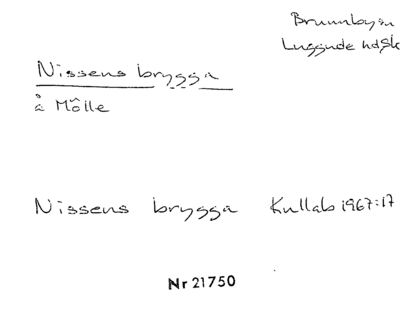 Brunnby sn
Luggude hdsk
Nissens brygga
å Mölle
Nissens brygga Kullab 1967:17
Nr 21750